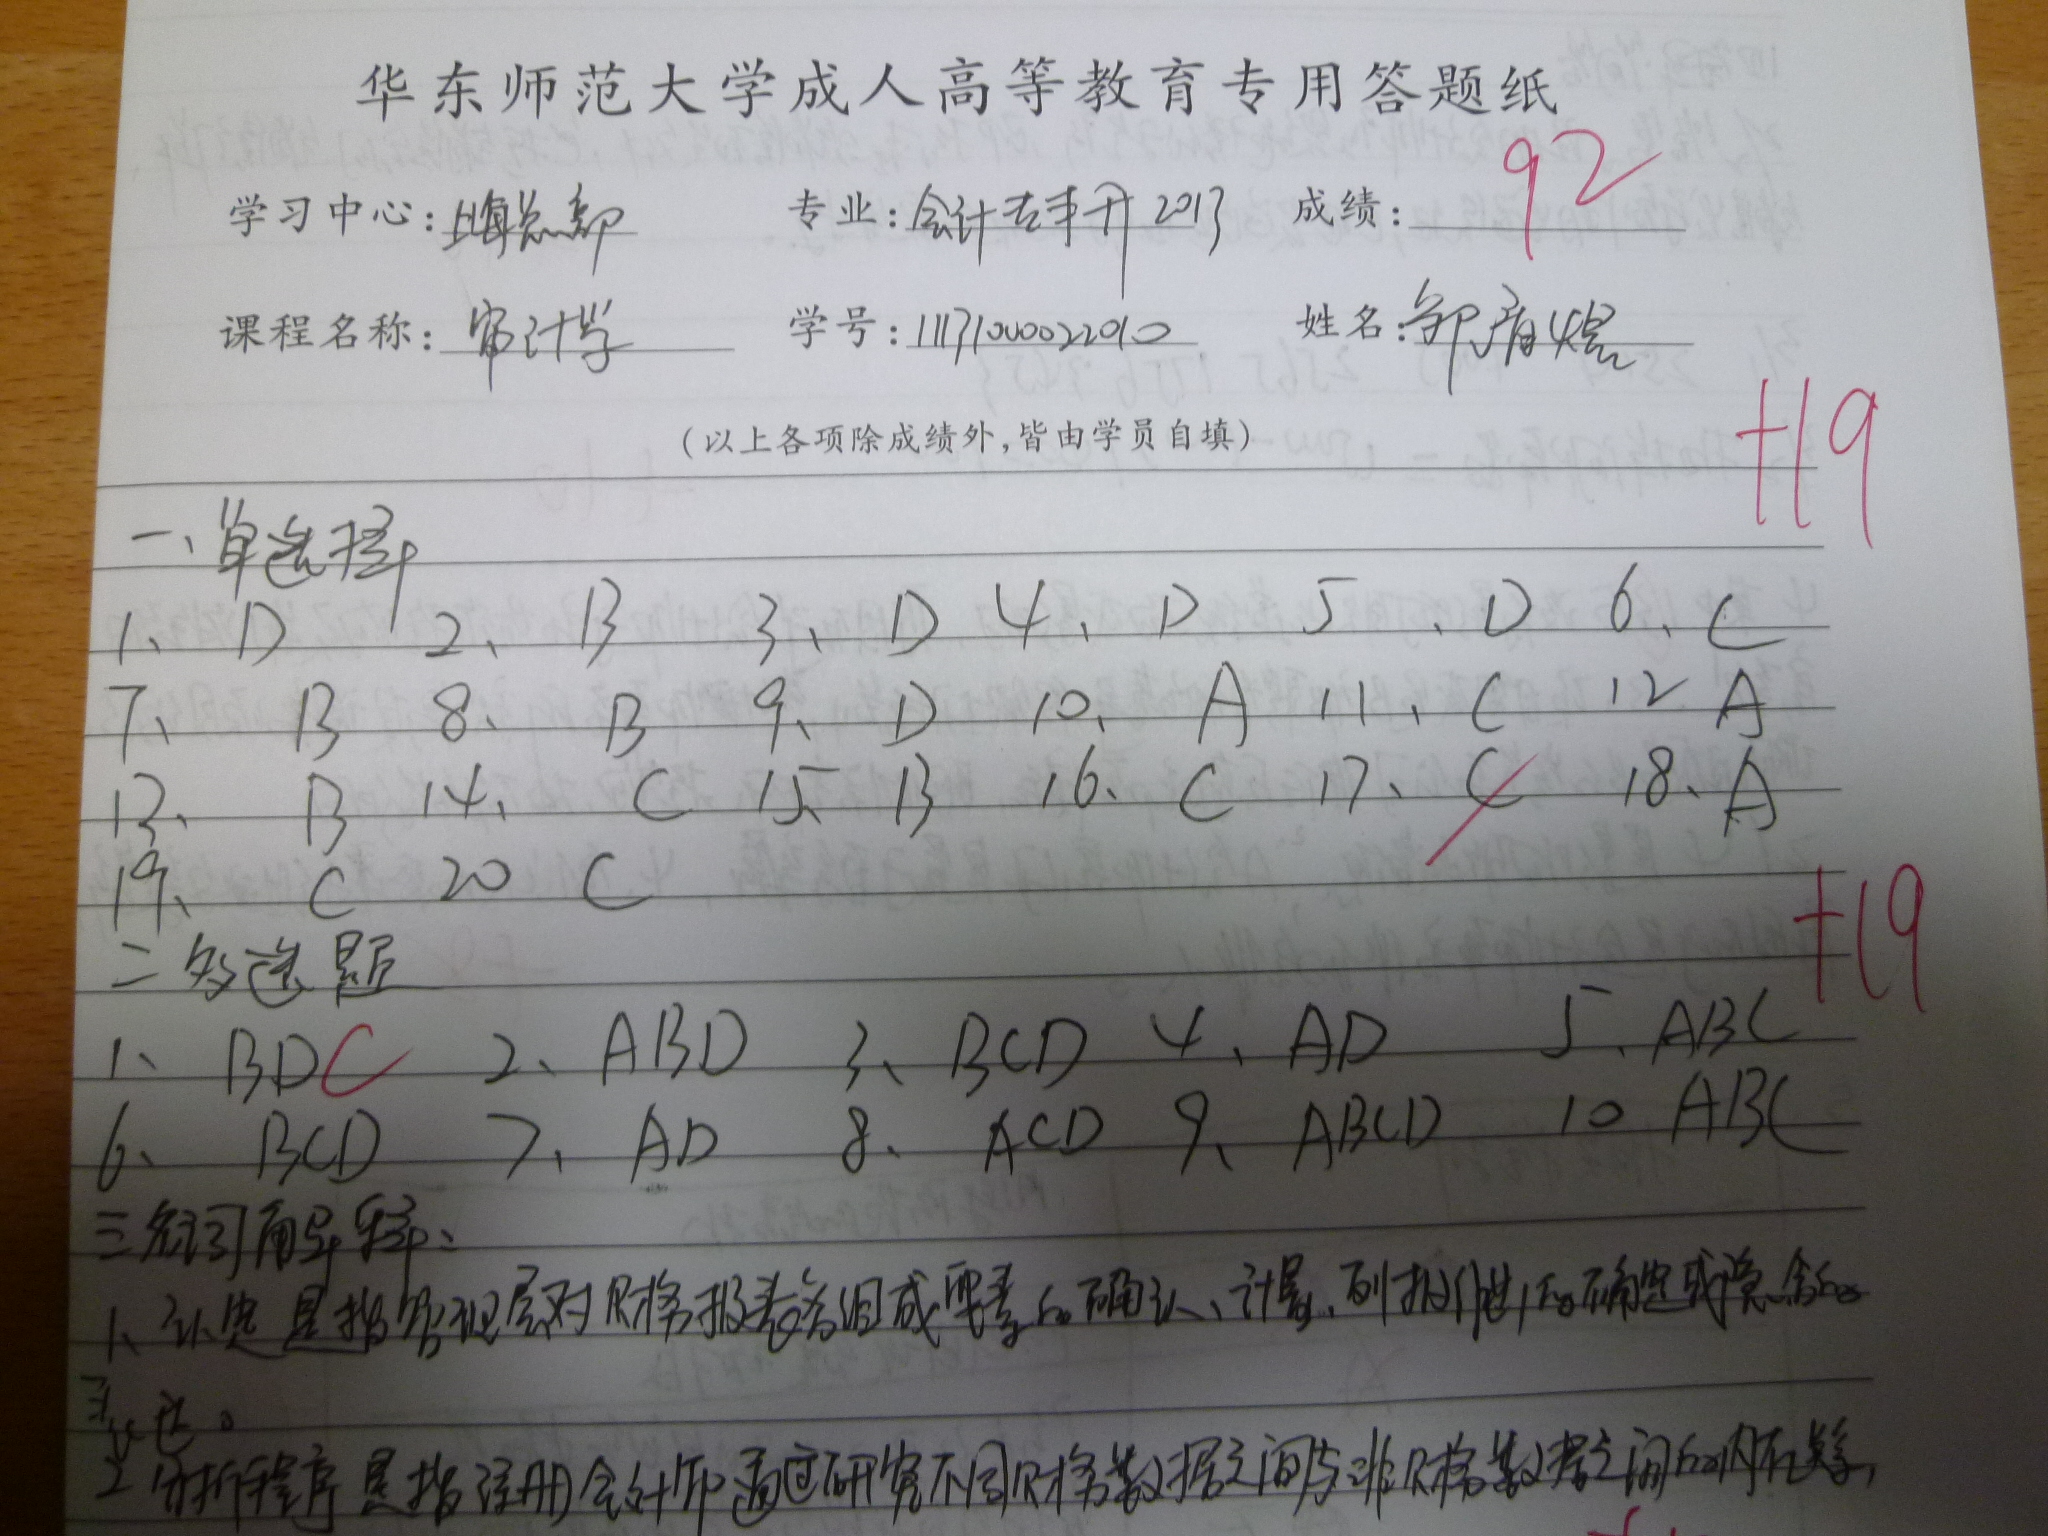 华东师范大学成人高等教育专用答题纸
学习中心：上海总部 专业：会计专升 2013 成绩：92
课程名称：审计学 学号：1113100022010 姓名：邹
（以上各项除成绩外，皆由学员自填）
+19
一、单选择
1、D 2、B 3、D 4、D 5、D 6、C
7、B 8、B 9、D 10、A 11、C 12 A
13、B 14、C 15、B 16、C 17、C 18、A
19、C 20 C
+19
二 多选题
1、BDC 2、ABD 3、BCD 4、AD 5、ABC
6、BCD 7、AD 8、ACD 9、ABCD 10 ABC
三 名词解释、
1、认定是指管理层对财务报表各组成要素的确认、计量、列报作出的明确或隐含的
表达。
2 分析程序是指注册会计师通过研究不同财务数据之间与非财务数据之间的内在关系，